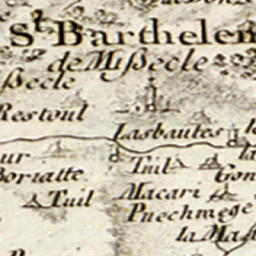 St Barthelem
de Mißecle
ßecle
Restoul
Lasbautes
Tuil
Gon
Borialte
Tuil
Macari
Puechmege
la Mas